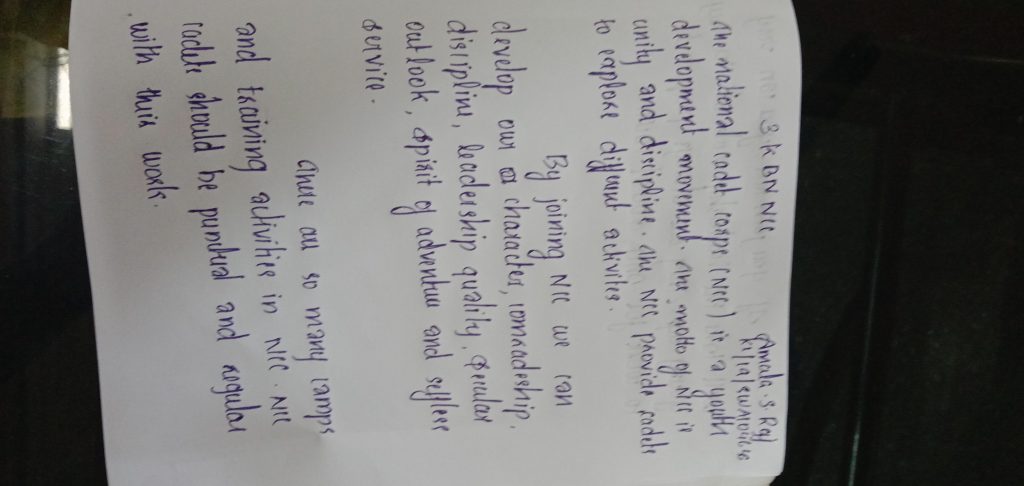 Amala. S. Raj
3 K BN NCC,
The national cadet corps (NCC) is a youth
development movement. The motto of NCC is
unity and discipline. The NCC provide cadets
to explore different activites.
By joining NCC we can
develop our character, comradeship,
discipline, leadership quality, secular
outlook, spirit of adventure and selfless
service.
There are so many camps
and training activities in NCC. NCC
cadets should be puntual and regular
with this works.